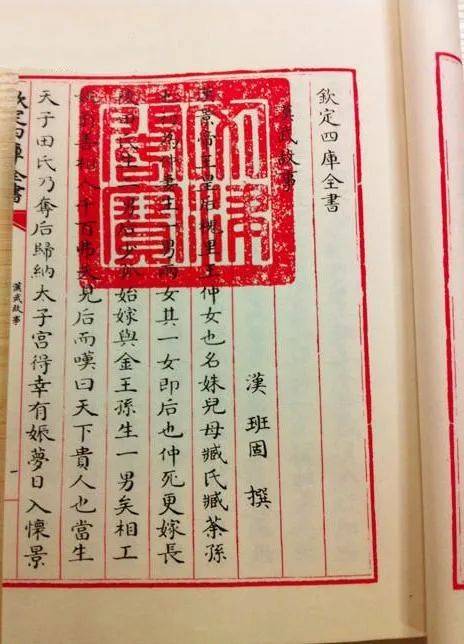 欽定四庫全書
漢武故事
漢 班固 撰
漢景帝王皇后槐里王仲女也名姝兒母臧氏臧荼孫
也初為仲妻生一男兩女其一女即后也仲死更嫁長
陵田氏生二男后少孤始嫁與金王孫生一男矣相工
姚翁善相人千百弗失見后而嘆曰天下貴人也當生
天子田氏乃奪后歸納太子宮得幸有娠夢日入懷景
欽定四庫全書
漢武故事
一
文淵閣寶